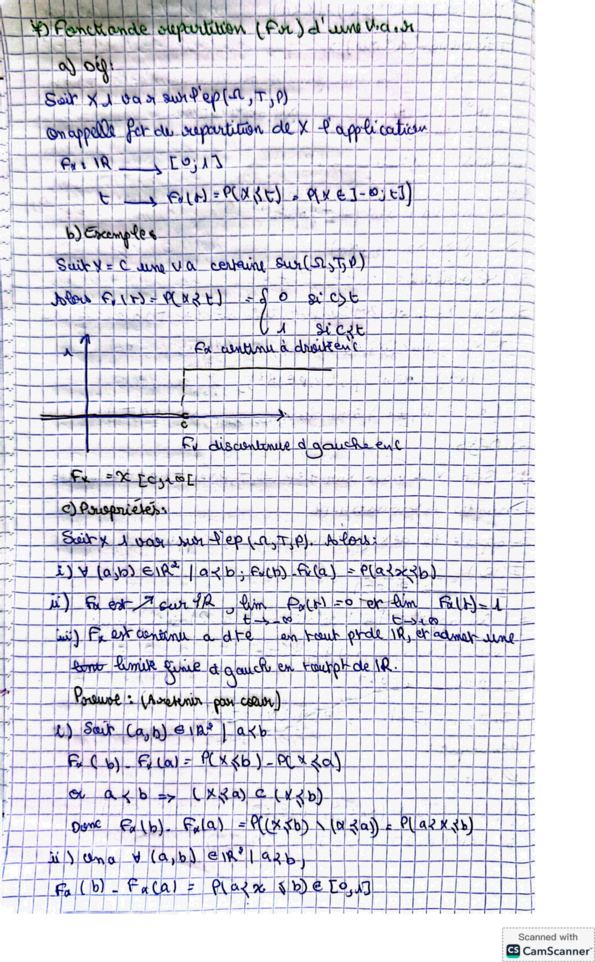 4) Fonction de repartition (Fx) d'une v.a.r
a) Def:
Soit X 1 var sur l'ep (Ω, T, P)
on appelle fct de repartition de X l'application
Fx : IR → [0; 1]
t → Fx(t) = P(X ≤ t) = P(X ∈ ]-∞; t])
b) Exemples
Soit X = C une va certaine sur (Ω, T, P)
Alors Fx(t) = P(X ≤ t) = { 0 si c > t
1 si c ≤ t
Fx continu à droite en c
1
c
Fx discontinue à gauche en c
Fx = χ [c, +∞[
c) Propriétés:
Soit X 1 var sur l'ep (Ω, T, P). Alors:
i) ∀ (a,b) ∈ IR² | a < b ; Fx(b) - Fx(a) = P(a < X ≤ b)
ii) Fx est ↗ sur IR, lim Fx(t) = 0 et lim Fx(t) = 1
t → -∞ t → +∞
iii) Fx est continu a dte en tout pt de IR, et admet une
limite finie à gauch en tout pt de IR.
Preuve : (A retenir par cœur)
i) Soit (a,b) ∈ IR² | a < b
Fx(b) - Fx(a) = P(X ≤ b) - P(X ≤ a)
or a < b => (X ≤ a) ⊂ (X ≤ b)
Donc Fx(b) - Fx(a) = P((X ≤ b) \ (X ≤ a)) = P(a < X ≤ b)
ii) on a ∀ (a,b) ∈ IR² | a < b,
Fx(b) - Fx(a) = P(a < x ≤ b) ∈ [0,1]
Scanned with
CS CamScanner